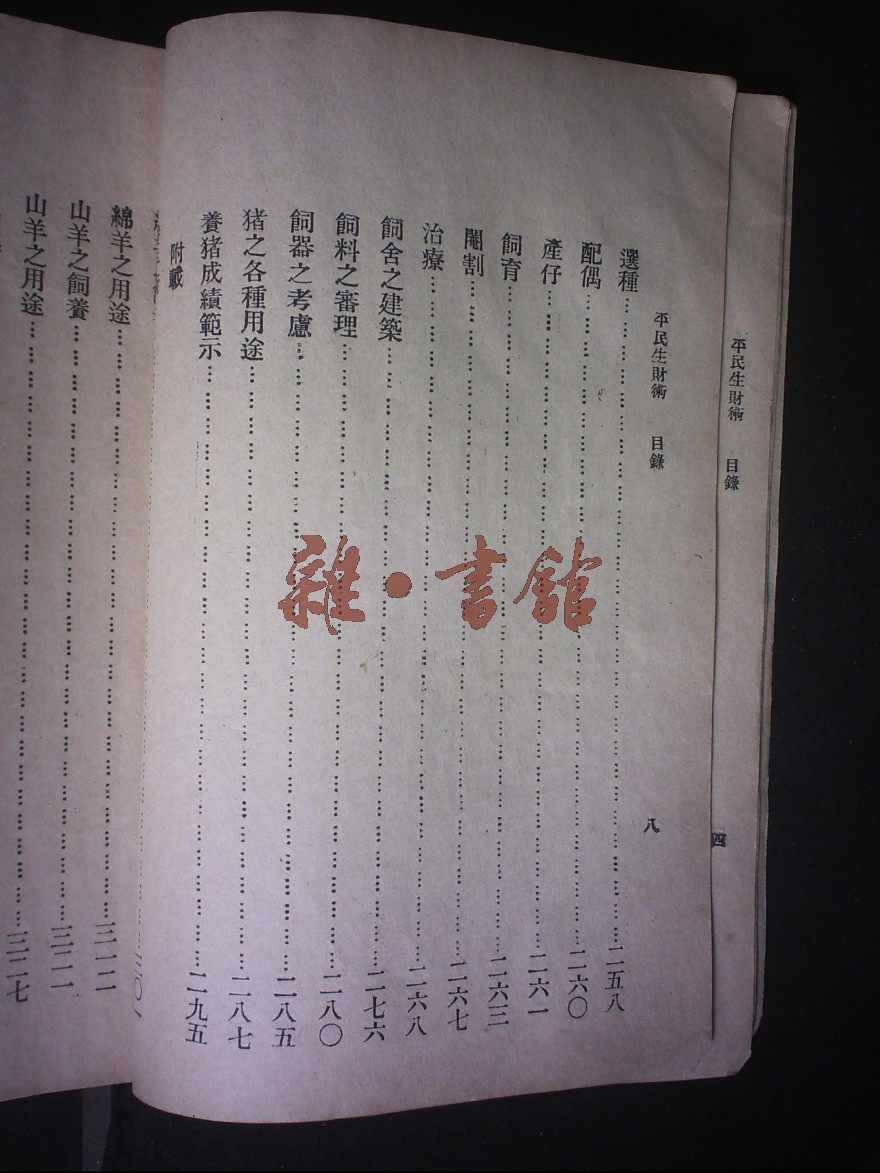 平民生財術 目錄 四
平民生財術 目錄 八
選種…………二五八
配偶…………二六〇
產仔…………二六一
飼育…………二六三
閹割…………二六七
治療…………二六八
飼舍之建築…………二七六
飼料之審理…………二八〇
飼器之考慮…………二八五
猪之各種用途…………二八七
養猪成績範示…………二九五
附載
綿羊之用途…………三一二
山羊之飼養…………三二一
山羊之用途…………三二七
雜·書館